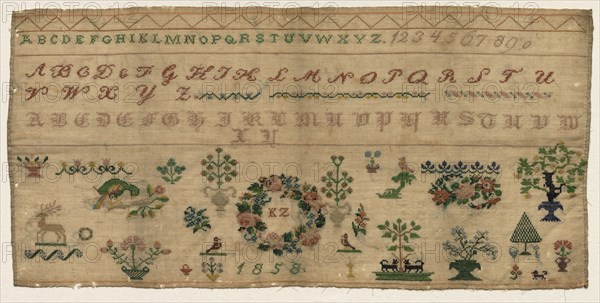 ABCDEFGHIKLMNOPQRSTUVWXYZ. 1234567890
A B C D E F G H I K L M N O P Q R S T U
V W X Y Z
A B C D E F G H I K L M N O P Q R S T U V W
X Y
KZ
1858